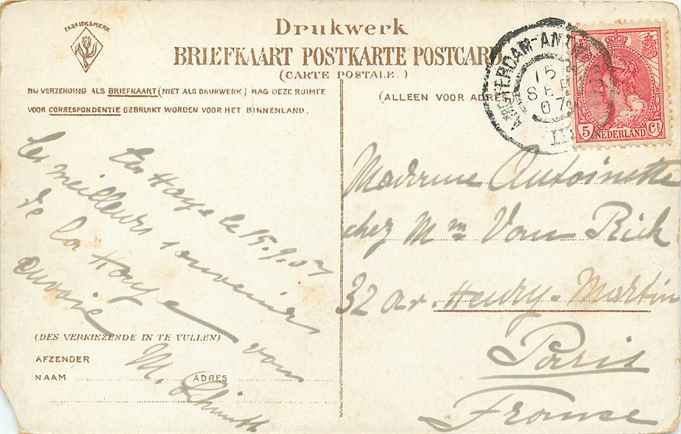 FABRIEKSMERK
Drukwerk
BRIEFKAART POSTKARTE POSTCARD
(CARTE POSTALE.)
BIJ VERZENDING ALS BRIEFKAART (NIET ALS DRUKWERK) MAG DEZE RUIMTE
VOOR CORRESPONDENTIE GEBRUIKT WORDEN VOOR HET BINNENLAND.
(ALLEEN VOOR ADRES
AMSTERDAM-ANTW
15
SEP
07
III
5 NEDERLAND Ct
La Haye le 15.9.07
Les meilleurs souvenirs
de La Haye vous
envoie
M. Schmith
(DES VERKIEZENDE IN TE VULLEN)
AFZENDER
NAAM ADRES
Madame Antoinette
chez Mme Van Rick
32 av. Henry-Martin
Paris
France